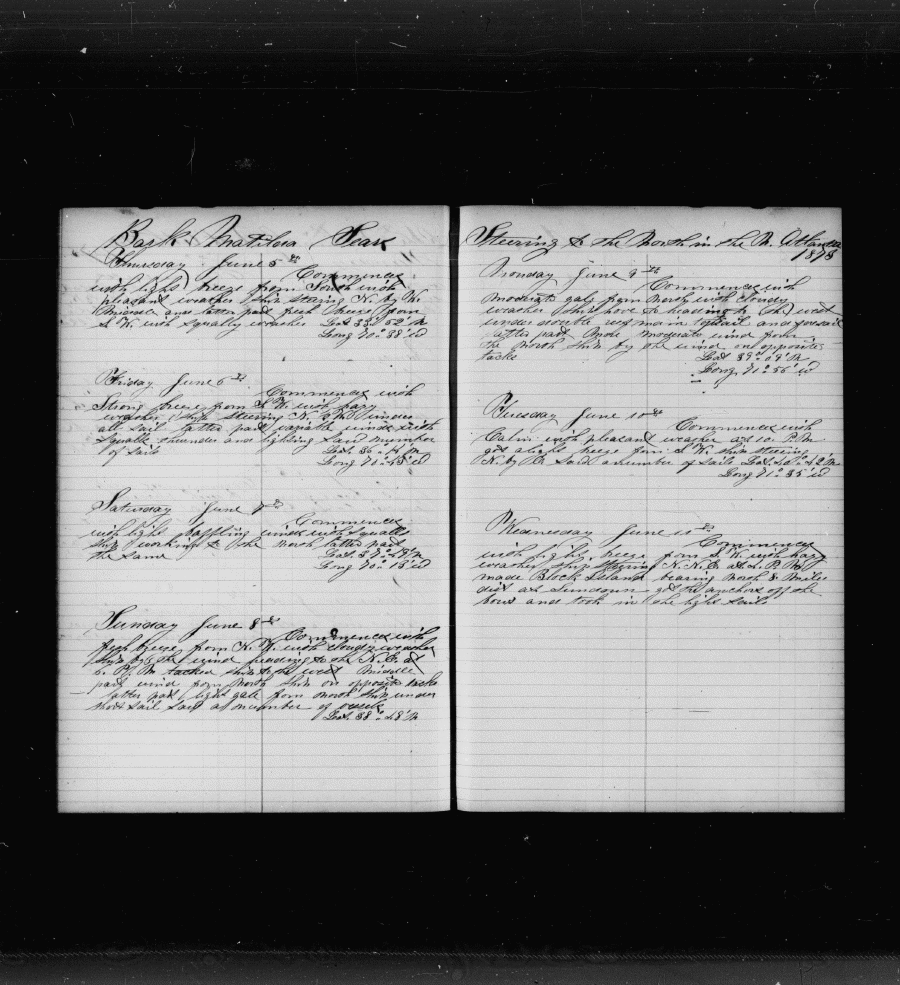 Bark Matilda Sears
Thursday June 5th
Commences
with light breeze from South with
pleasant weather Ship steering N. by W.
Middle and latter part fresh breeze from
S W. with squally weather Lat 33° 52' N
Long 70° 38' W
Friday June 6th
Commences with
Strong breeze from S W. with hazy
weather Ship steering N. by W. under
all sail latter part variable winds with
squalls thunder and lighting Saw number
of sails Lat 36° 14' N
Long 70° 15' W
Saturday June 7th
Commences
with light baffling winds with squalls
Ship working to the North latter part
the same Lat. 37° 19' N
Long 70° 15' W
Sunday June 8th
Commences with
fresh breeze from N. W. with cloudy weather
Ship by the wind heading to the N. E. at
6. P. M tacked ship to the West Middle
part wind from North Ship on opposite tacks
latter part light gale from North Ship under
short sail Saw a number of vessels
Lat. 38° 48' N
Steering to the North in the N. Atlantic
1878
Monday June 9th
Commences with
moderate gale from North with cloudy
weather Ship hove to heading to the West
under double reef main topsail and foresail
latter part More moderate wind from
the North Ship by the wind on opposite
tacks Lat 39° 09' N
Long 71° 56' W
Tuesday June 10th
Commences with
Calm with pleasant weather at 10. P. M
got a light breeze from S W. Ship steering
N. by E. Saw a number of sails Lat. 40° 42' N
Long 71° 35' W
Wednesday June 11th
Commences
with light breeze from S W. with hazy
weather Ship steering N. N. E. at 2. P. M
made Block Island bearing North 8 Miles
dist at Sundown got the anchors off the
bows and took in the light Sails